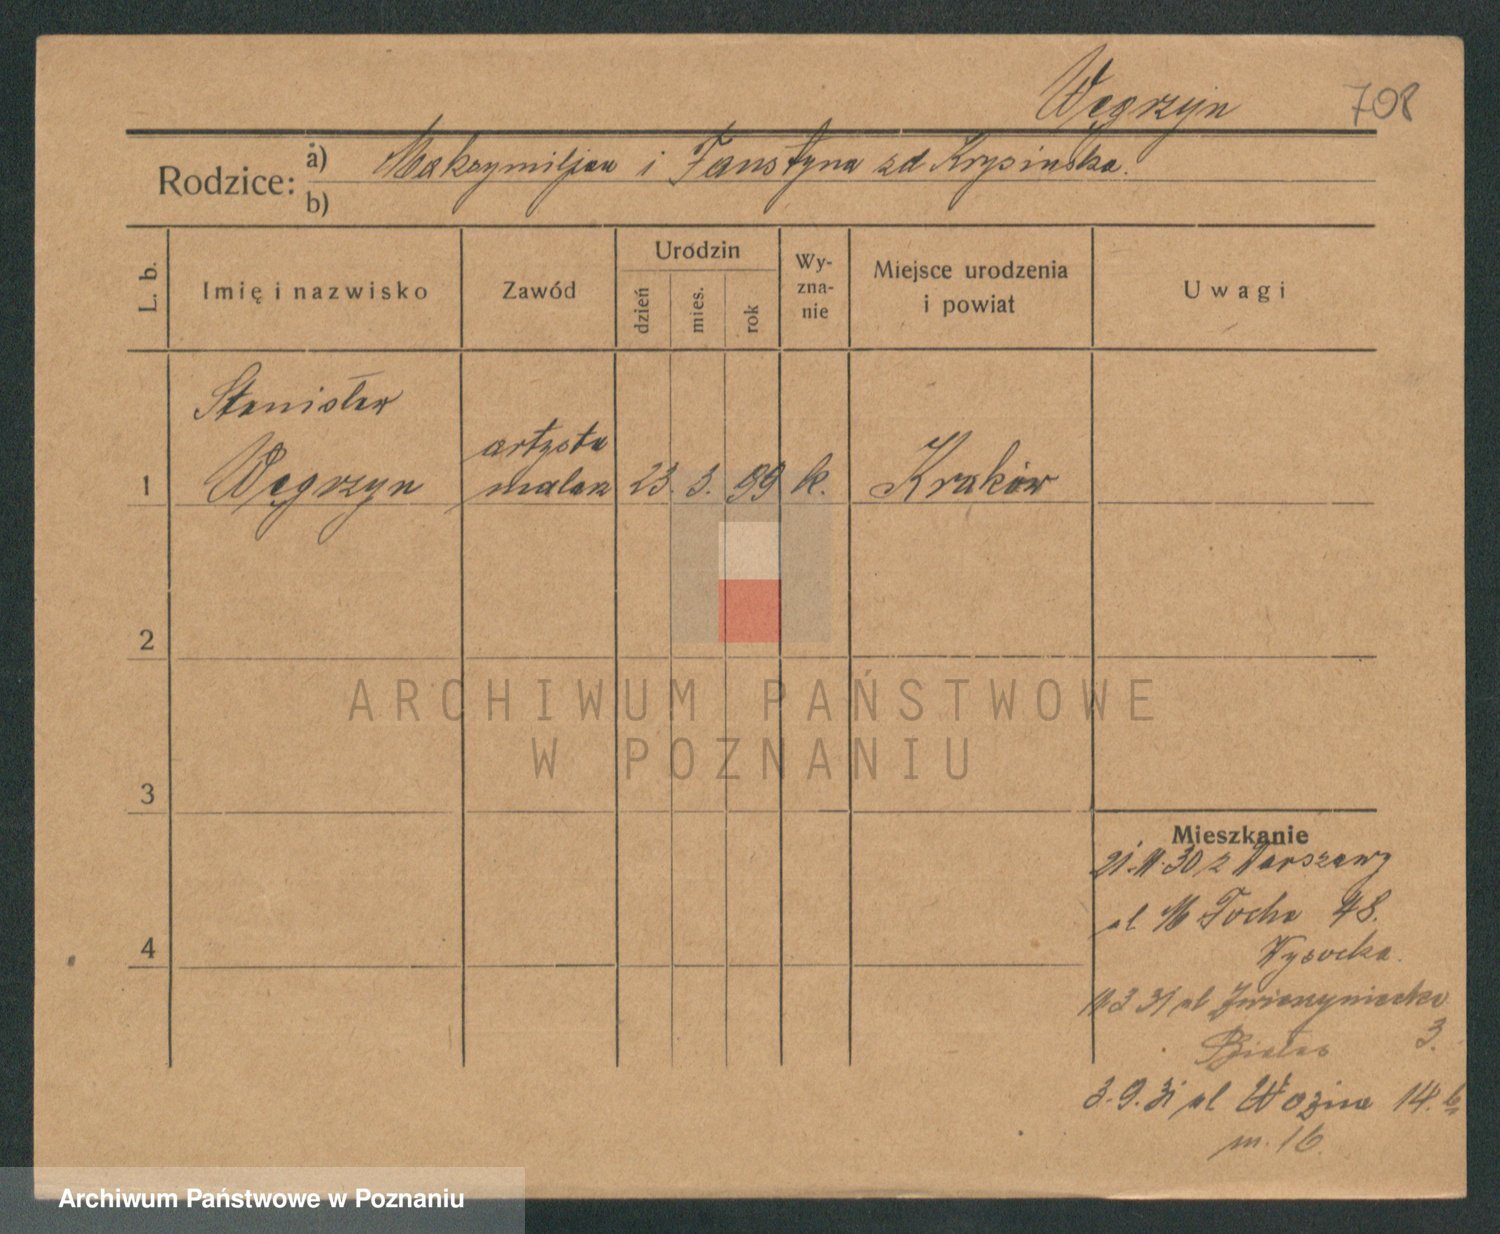 Węgrzyn 708
Rodzice: a) Maksymiljan i Faustyna zd Krysińska.
b)
L. b. Imię i nazwisko Zawód Urodzin dzień mies. rok Wyznanie Miejsce urodzenia i powiat Uwagi
Stanisław
1 Węgrzyn artysta malarz 23. 3. 99 k. Kraków
2
ARCHIWUM PAŃSTWOWE
W POZNANIU
3
Mieszkanie
21.11.30 z Warszawy
ul M Focha 48.
4
Wysocka.
3 31 ul Zwierzyniecka
3.
3.9.31 ul Wozna 14.
m. 16.
Archiwum Państwowe w Poznaniu